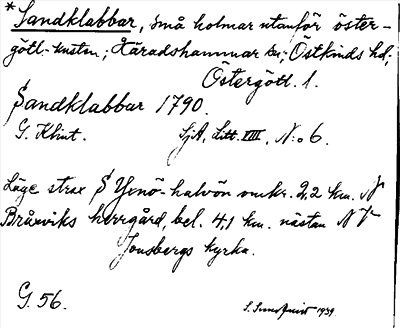 *Sandklabbar, små holmar utanför öster-
götl. kusten; Häradshammar sn; Östkinds hd;
Östergötl. l.
Sandklabbar 1790.
G. Klint. SjA, Litt. VIII, N:o 6.
Läge strax S Yxnö-halvön omkr. 2,2 km. N
Bråxviks herrgård, bel. 4,1 km. nästan N
Jonsbergs kyrka.
G. 56.
S. Sundqvist 1939.